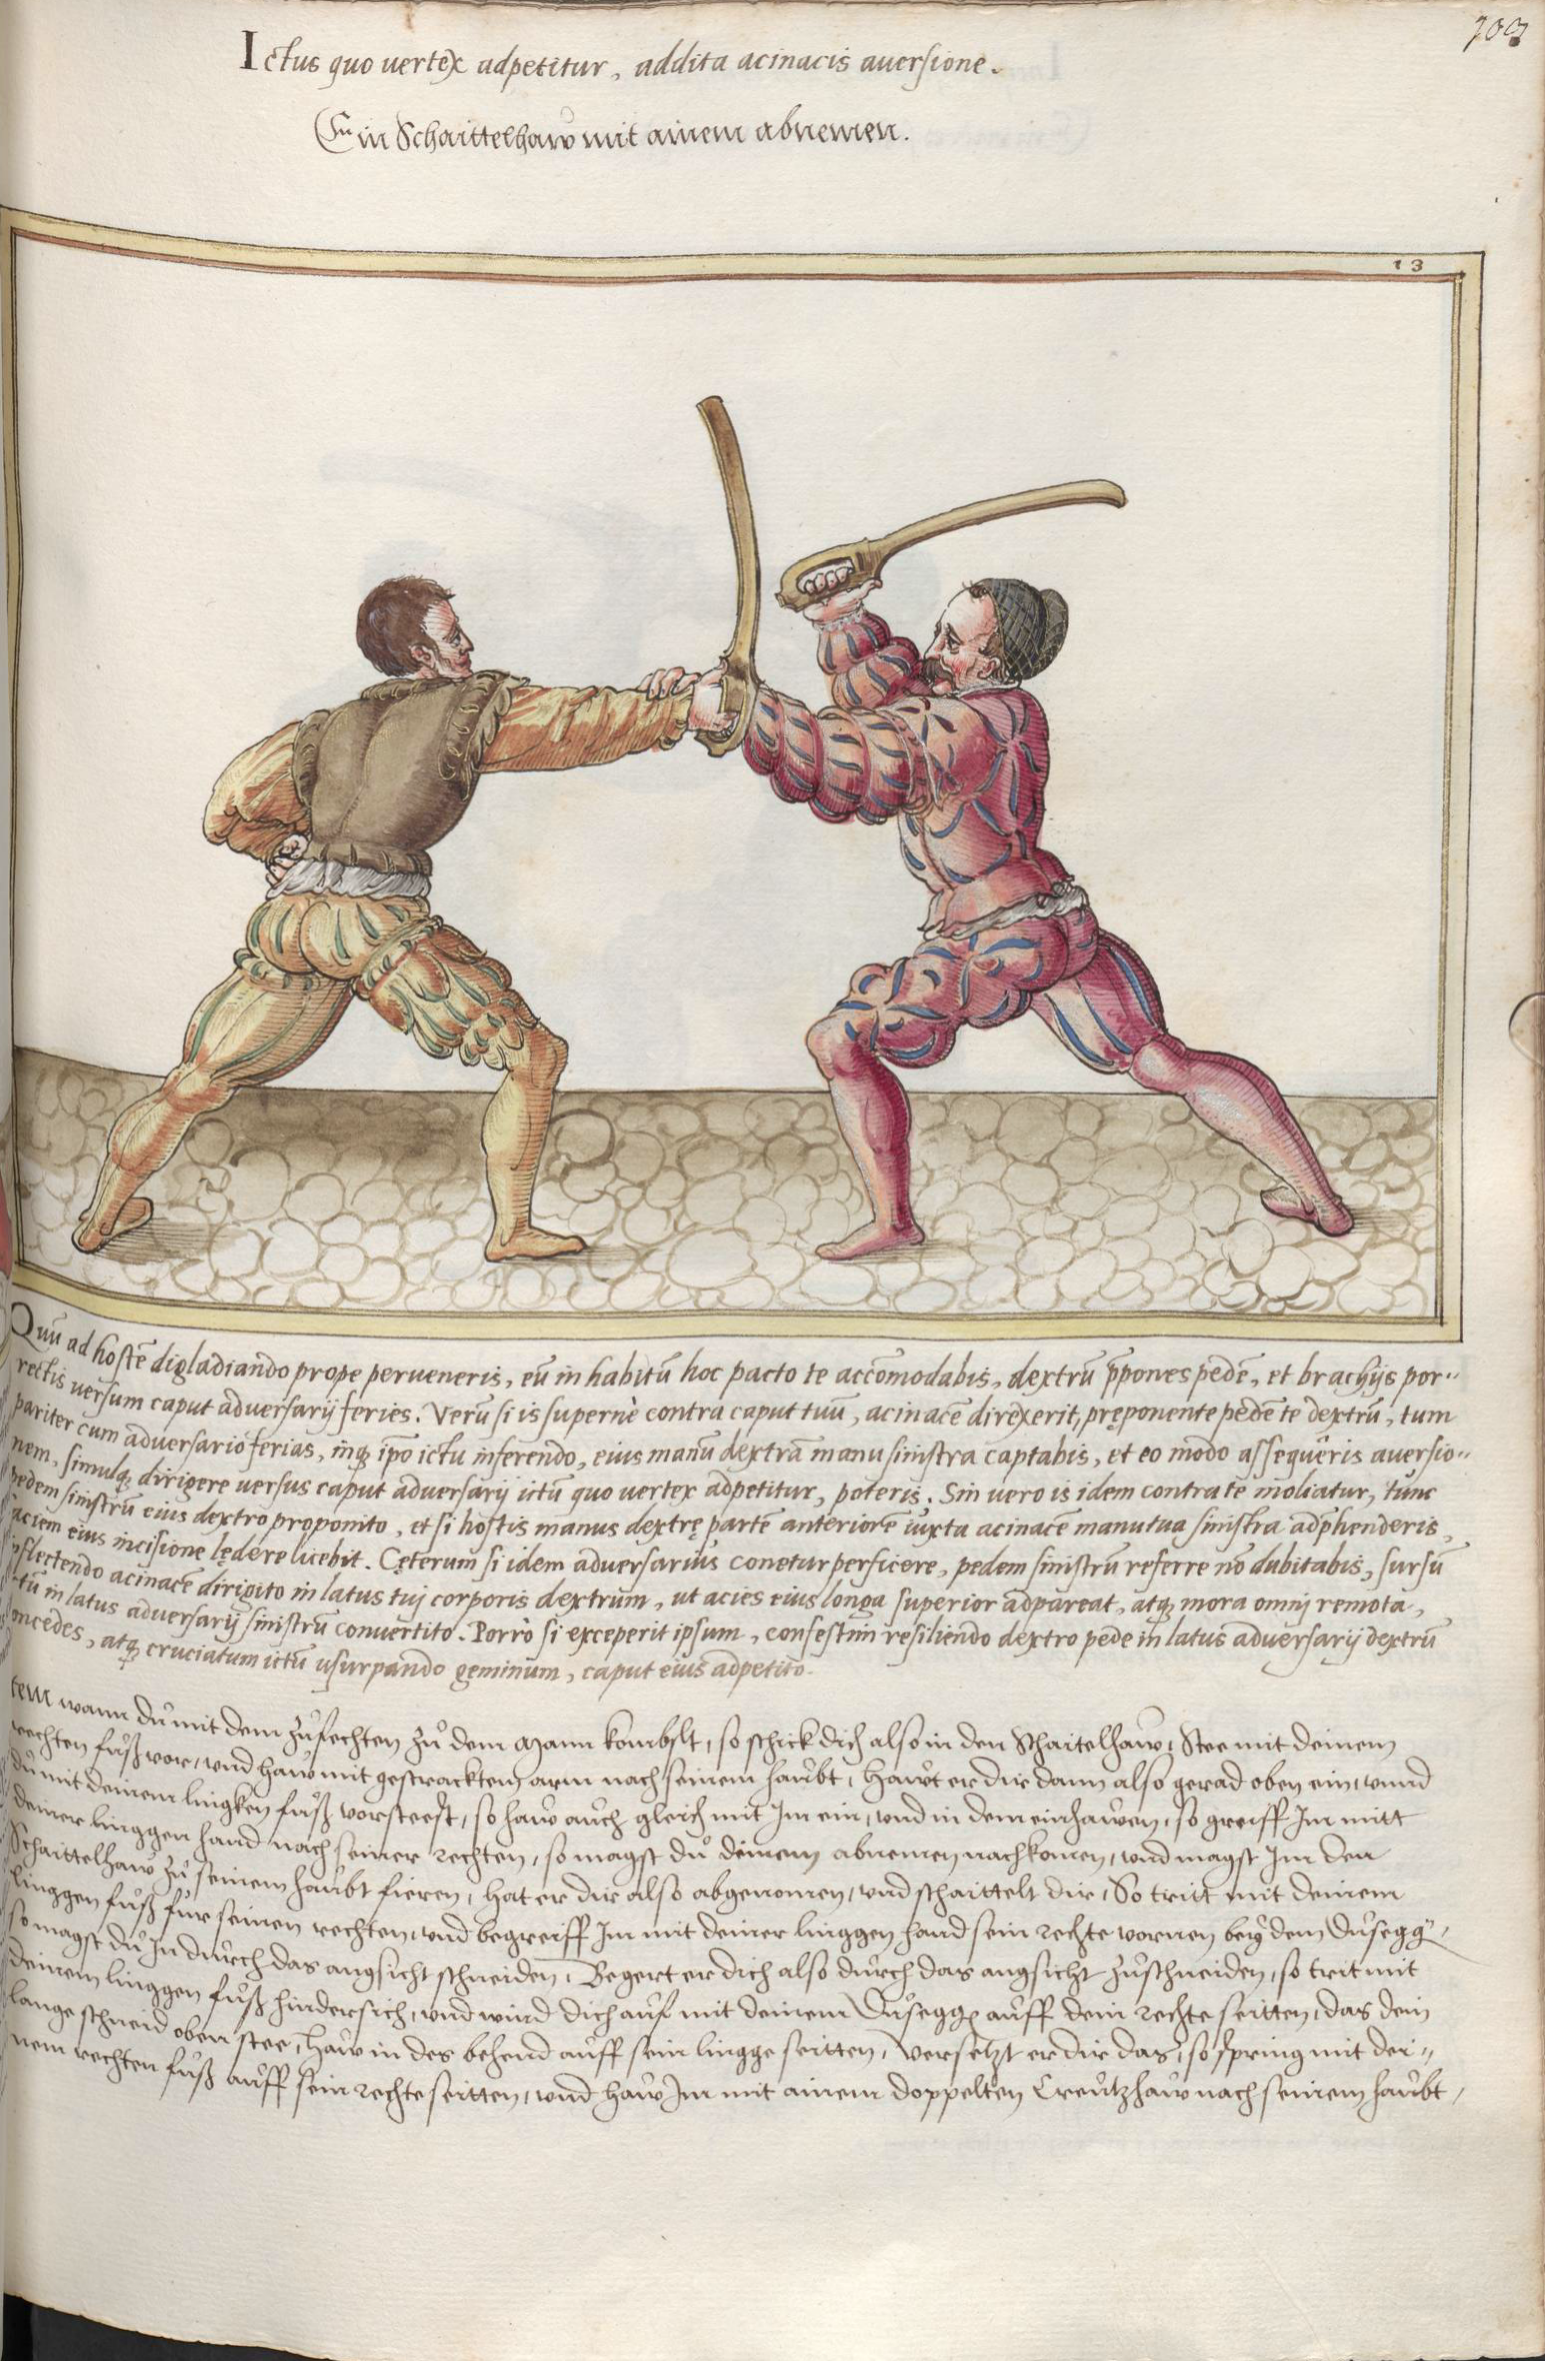 Ictus quo uertex adpetitur, addita acinacis auersione.
Ein Schaittelhaw mit ainem abnemen.
13
Quū ad hostē digladiando prope perueneris, eū in habitū hoc pacto te accōmodabis, dextrū p̄pones pedē, et brachijs por-
rectis uersum caput aduersarij feries. Verū si is supernè contra caput tuū, acinacē direxerit, pręponente pedē te dextrū, tum
pariter cum aduersario ferias, inq; ipō ictu inferendo, eius manū dextrā manu sinistra captabis, et eo modo assequêris auersio-
nem, simulq; dirigere uersus caput aduersarij ictū quo uertex adpetitur, poteris. Sin uero is idem contra te moliatur, tunc
pedem sinistrū eius dextro proponito, et si hostis manus dextrę partē anteriorē iuxta acinacē manu tua sinistra adp̄henderis,
aciem eius incisione lędere licebit. Cęterum si idem aduersarius conetur perficere, pedem sinistrū referre nō dubitabis, sursū
flectendo acinacē dirigito in latus tuj corporis dextrum, ut acies eius longa superior adpareat, atq; mora omnj remota,
tū in latus aduersarij sinistrū conuertito. Porrò si exceperit ipsum, confestim resiliendo dextro pede in latus aduersarij dextrū
concedes, atq; cruciatum ictū usurpando geminum, caput eius adpetito.
tem wann du mit dem zůfechten zů dem Mann kombst, so schick dich also in den Schaitelhaw, Stee mit deinem
rechten fůß vor, vnd haw mit gestracktem arm nach seinem haubt, Hawt er dir dann also gerad oben ein, vnnd
du mit deinem lingken fůß vorsteest, so haw auch gleich mit Im ein, vnd in dem einhawen, so greiff Im mitt
deiner linggen hand nach seiner rechten, so magst du deinem abnemen nachkomen, vnd magst Im den
Schaittelhaw zů seinem haubt fieren, Hat er dir also abgenomen, vnd schaittelt dir, So tritt mit deinem
linggen fůß fur seinen rechten, vnd begreiff Im mit deiner linggen hand sein rechte vornen bey dem Dusegg,
so magst du In durch das angsicht schneiden, Begert er dich also durch das angsicht zůschneiden, so trit mit
deinem linggen fůß hindersich, vnd wind dich auf mit deinem Dusegg auff dein rechte seitten, das dein
lange schneid oben stee, haw in des behend auff sein lingge seitten, Versetzt er dir das, so spring mit dei-
nem rechten fůß auff sein rechte seitten, vnd haw Im mit ainem doppelten Creutzhaw nach seinem haubt,